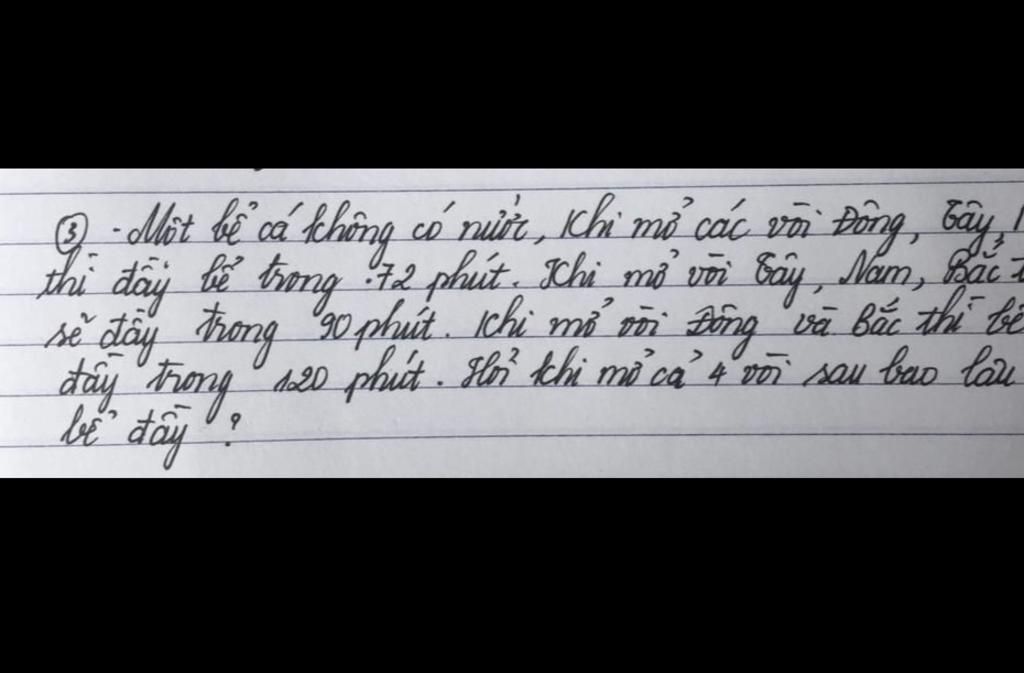 ③ - Một bể cá không có nước, Khi mở các vòi Đông, Tây,
thì đầy bể trong 72 phút. Khi mở vòi Tây, Nam, Bắc
sẽ đầy trong 90 phút. Khi mở vòi Đông và Bắc thì bể
đầy trong 120 phút. Hỏi khi mở cả 4 vòi sau bao lâu
bể đầy ?